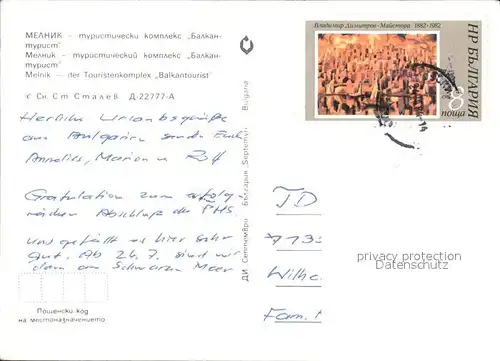 МЕЛНИК – туристически комплекс „Балкан-
турист"
Мелник – туристический комплекс „Балкан-
турист"
Melnik – der Touristenkomplex „Balkantourist"
с Сн. Ст Сталев Д-22777-А
Herzliche Urlaubsgrüße
aus Bulgarien senden Euch
Annelies, Marion u. Rolf
Gratulation zum erfolg-
reichen Abschluß der PHS.
Uns gefällt es hier sehr
gut. Ab 26.7. sind wir
dann am Schwarzen Meer
Пощенски код
на местоназначението
ДИ Септември България „Septemvri" Bulgaria
Владимир Димитров–Майстора 1882–1982
НР БЪЛГАРИЯ
8
поща
JD
713
Wilhe
Fam.
privacy protection
Datenschutz